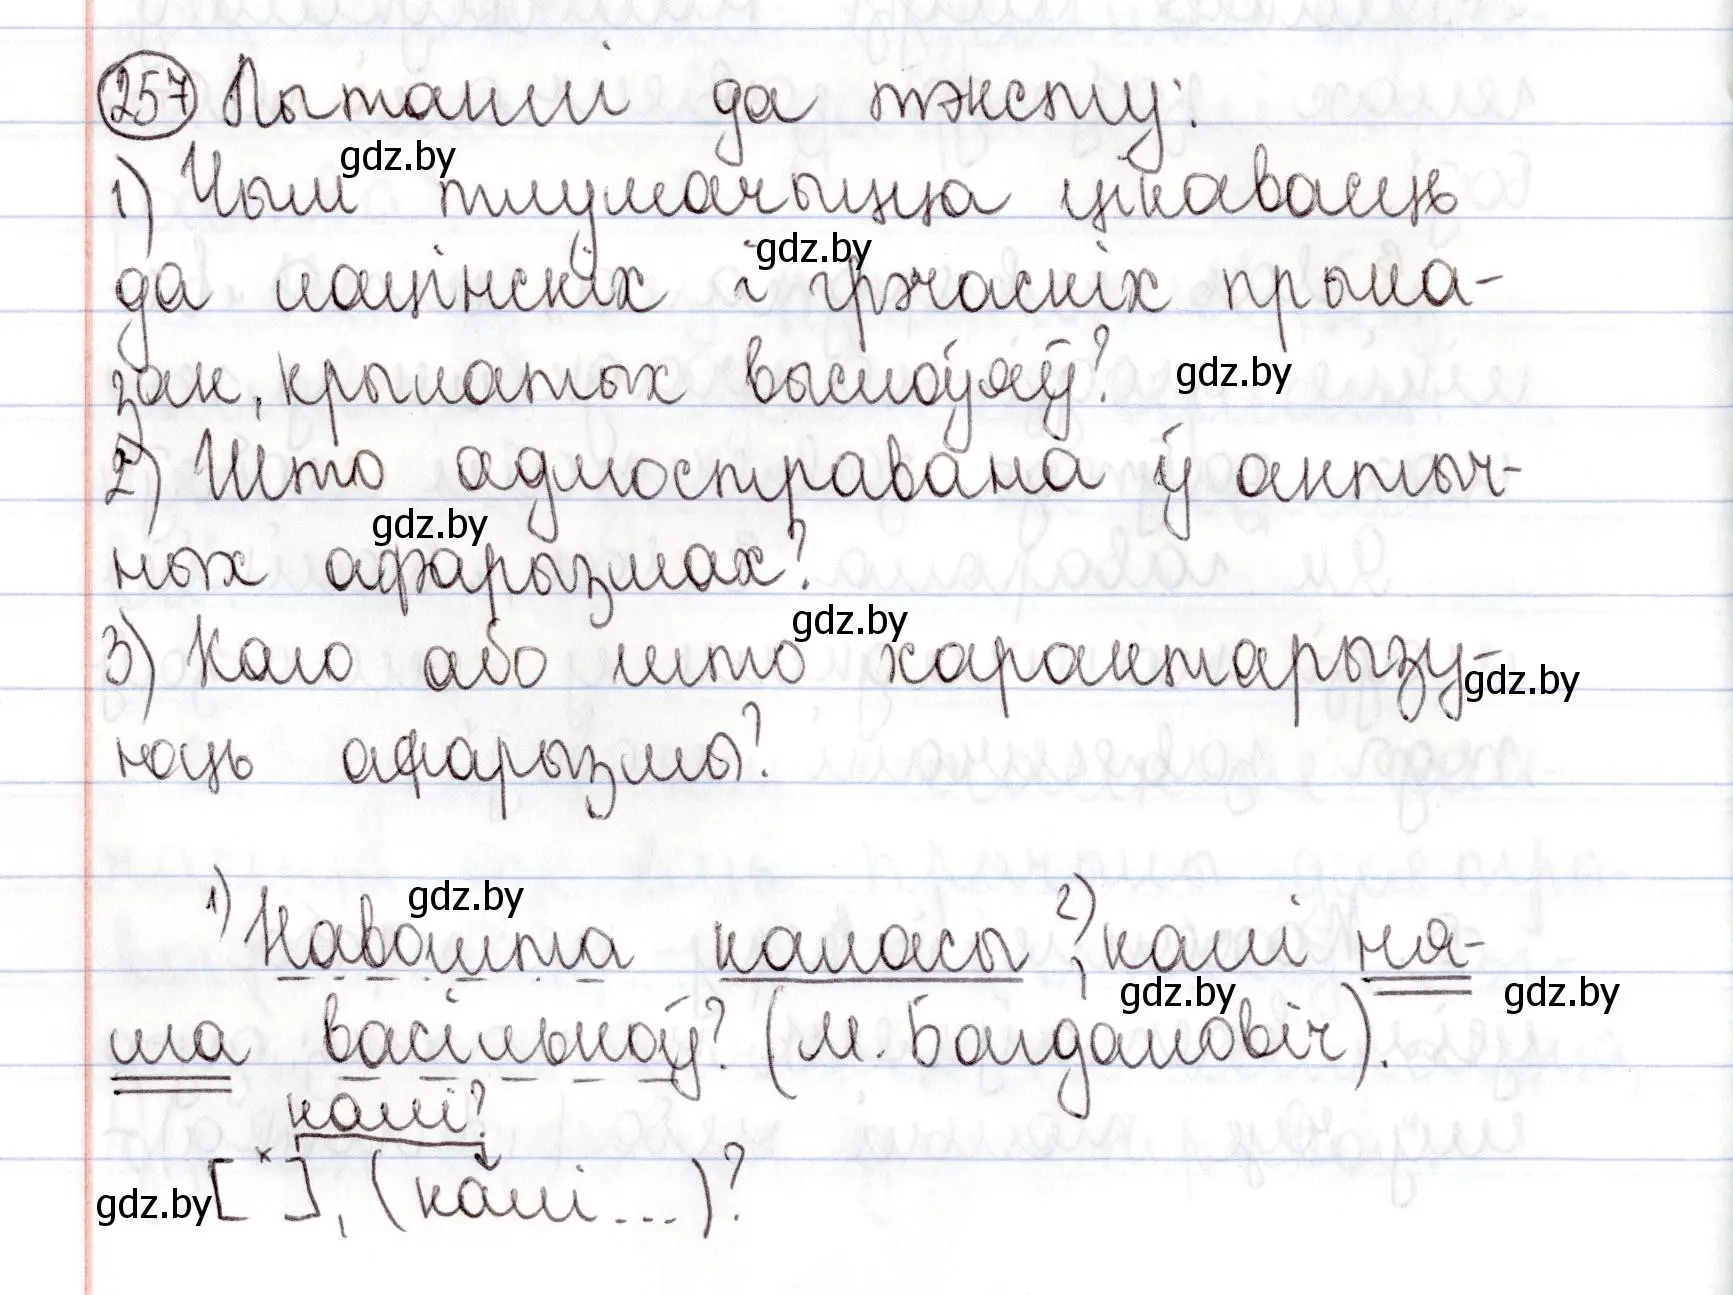 257 Пытанні да тэксту:
gdz.by
1) Чым тлумачыцца цікавасць
gdz.by
да лацінскіх і грэчаскіх прыма-
зак, крылатых выслоўяў?
gdz.by
2) Што адлюстравана ў антыч-
gdz.by
ных афарызмах?
gdz.by
3) Каго або што характарызу-
gdz.by
юць афарызмы?
gdz.by
1) Навошта каласы 2), калі ня-
gdz.by gdz.by
ма васількоў? (М. Багдановіч).
калі?
[ x ], (калі ...)?
gdz.by